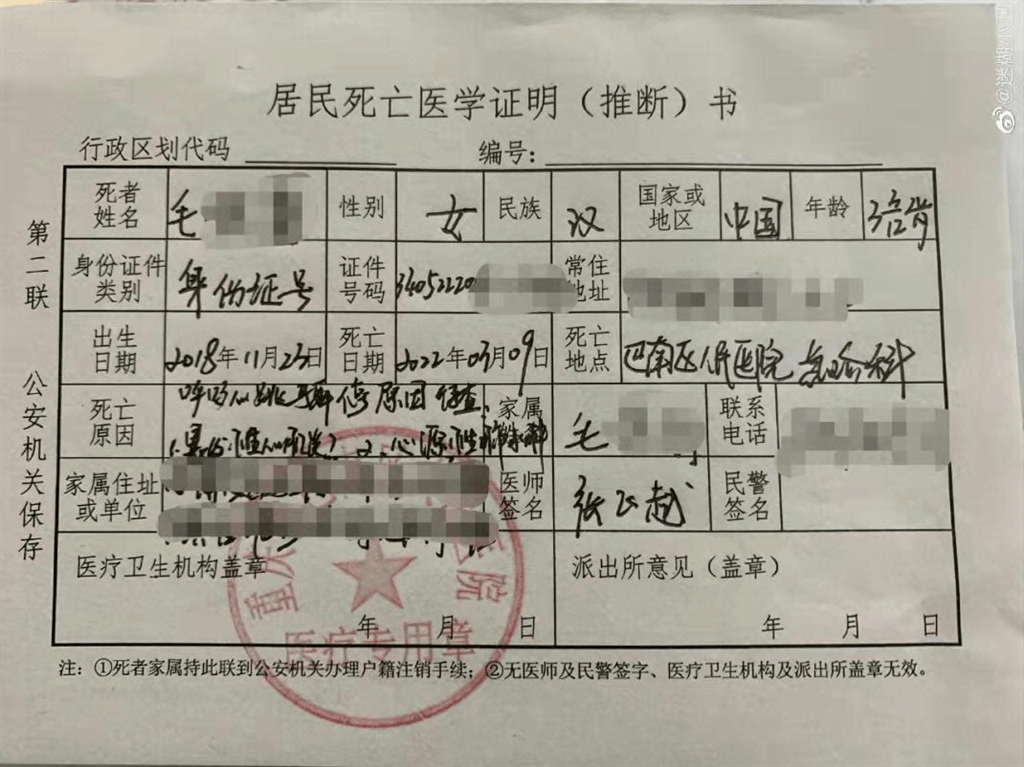 @迷糊
居民死亡医学证明（推断）书
行政区划代码 编号：
第二联 公安机关保存
死者姓名 毛 性别 女 民族 汉 国家或地区 中国 年龄 3
身份证件类别 身份证号 证件号码 34052220 常住地址
出生日期 2018年11月23日 死亡日期 2022年03月09日 死亡地点 巴南区人民医院 急诊科
死亡原因 呼吸心跳 停 原因待查 家属 毛 联系电话
1.暴发性心肌炎？ 2.心源性
家属住址或单位 医师签名 张 民警签名
医疗卫生机构盖章 派出所意见（盖章）
重庆 医院
医疗专用章
年 月 日 年 月 日
注：①死者家属持此联到公安机关办理户籍注销手续；②无医师及民警签字、医疗卫生机构及派出所盖章无效。